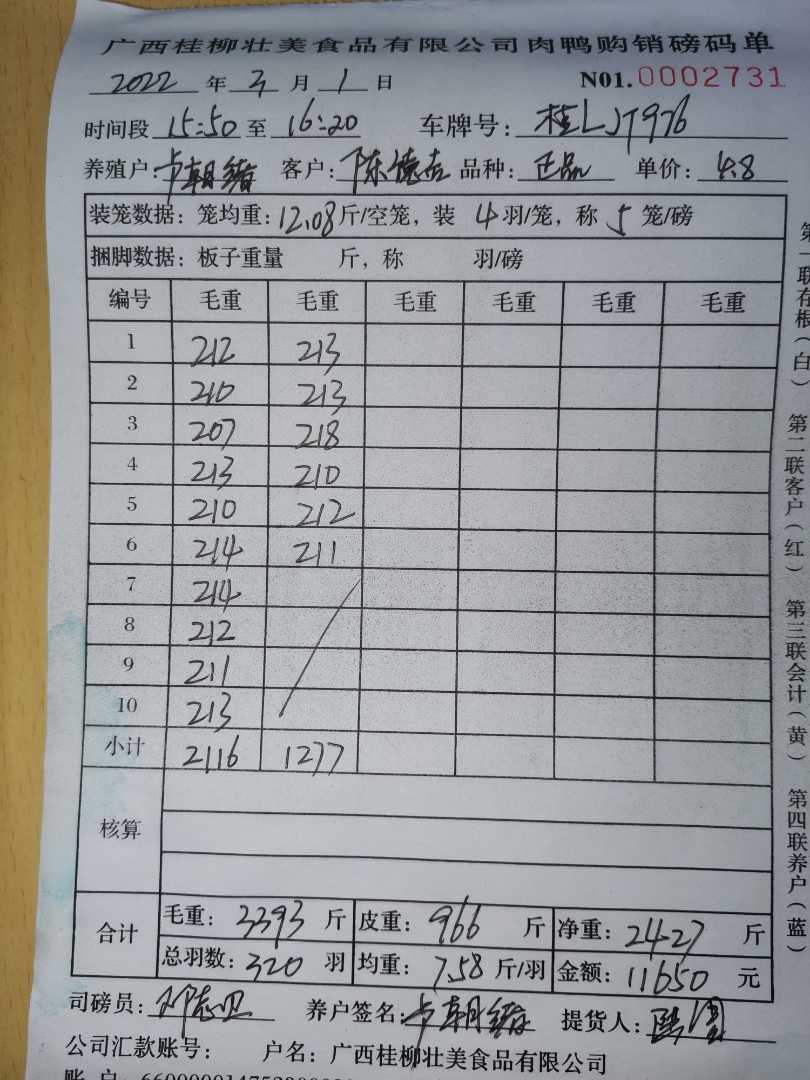 广西桂柳壮美食品有限公司肉鸭购销磅码单
2022 年 3 月 1 日 N01.0002731
时间段 15:50 至 16:20 车牌号: 桂LJT976
养殖户: 卢朝 客户: 陈德吉 品种: 正品 单价: 4.8
装笼数据: 笼均重: 12.08 斤/空笼, 装 4 羽/笼, 称 5 笼/磅
捆脚数据: 板子重量 斤, 称 羽/磅
编号 毛重 毛重 毛重 毛重 毛重 毛重
1 212 213
2 210 213
3 207 218
4 213 210
5 210 212
6 214 211
7 214
8 212
9 211
10 213
小计 2116 1277
核算
合计 毛重: 3393 斤 皮重: 966 斤 净重: 2427 斤
总羽数: 320 羽 均重: 7.58 斤/羽 金额: 11650 元
司磅员: 养户签名: 卢朝 提货人:
公司汇款账号: 户名: 广西桂柳壮美食品有限公司
账 户
第一联存根(白) 第二联客户(红) 第三联会计(黄) 第四联养户(蓝)